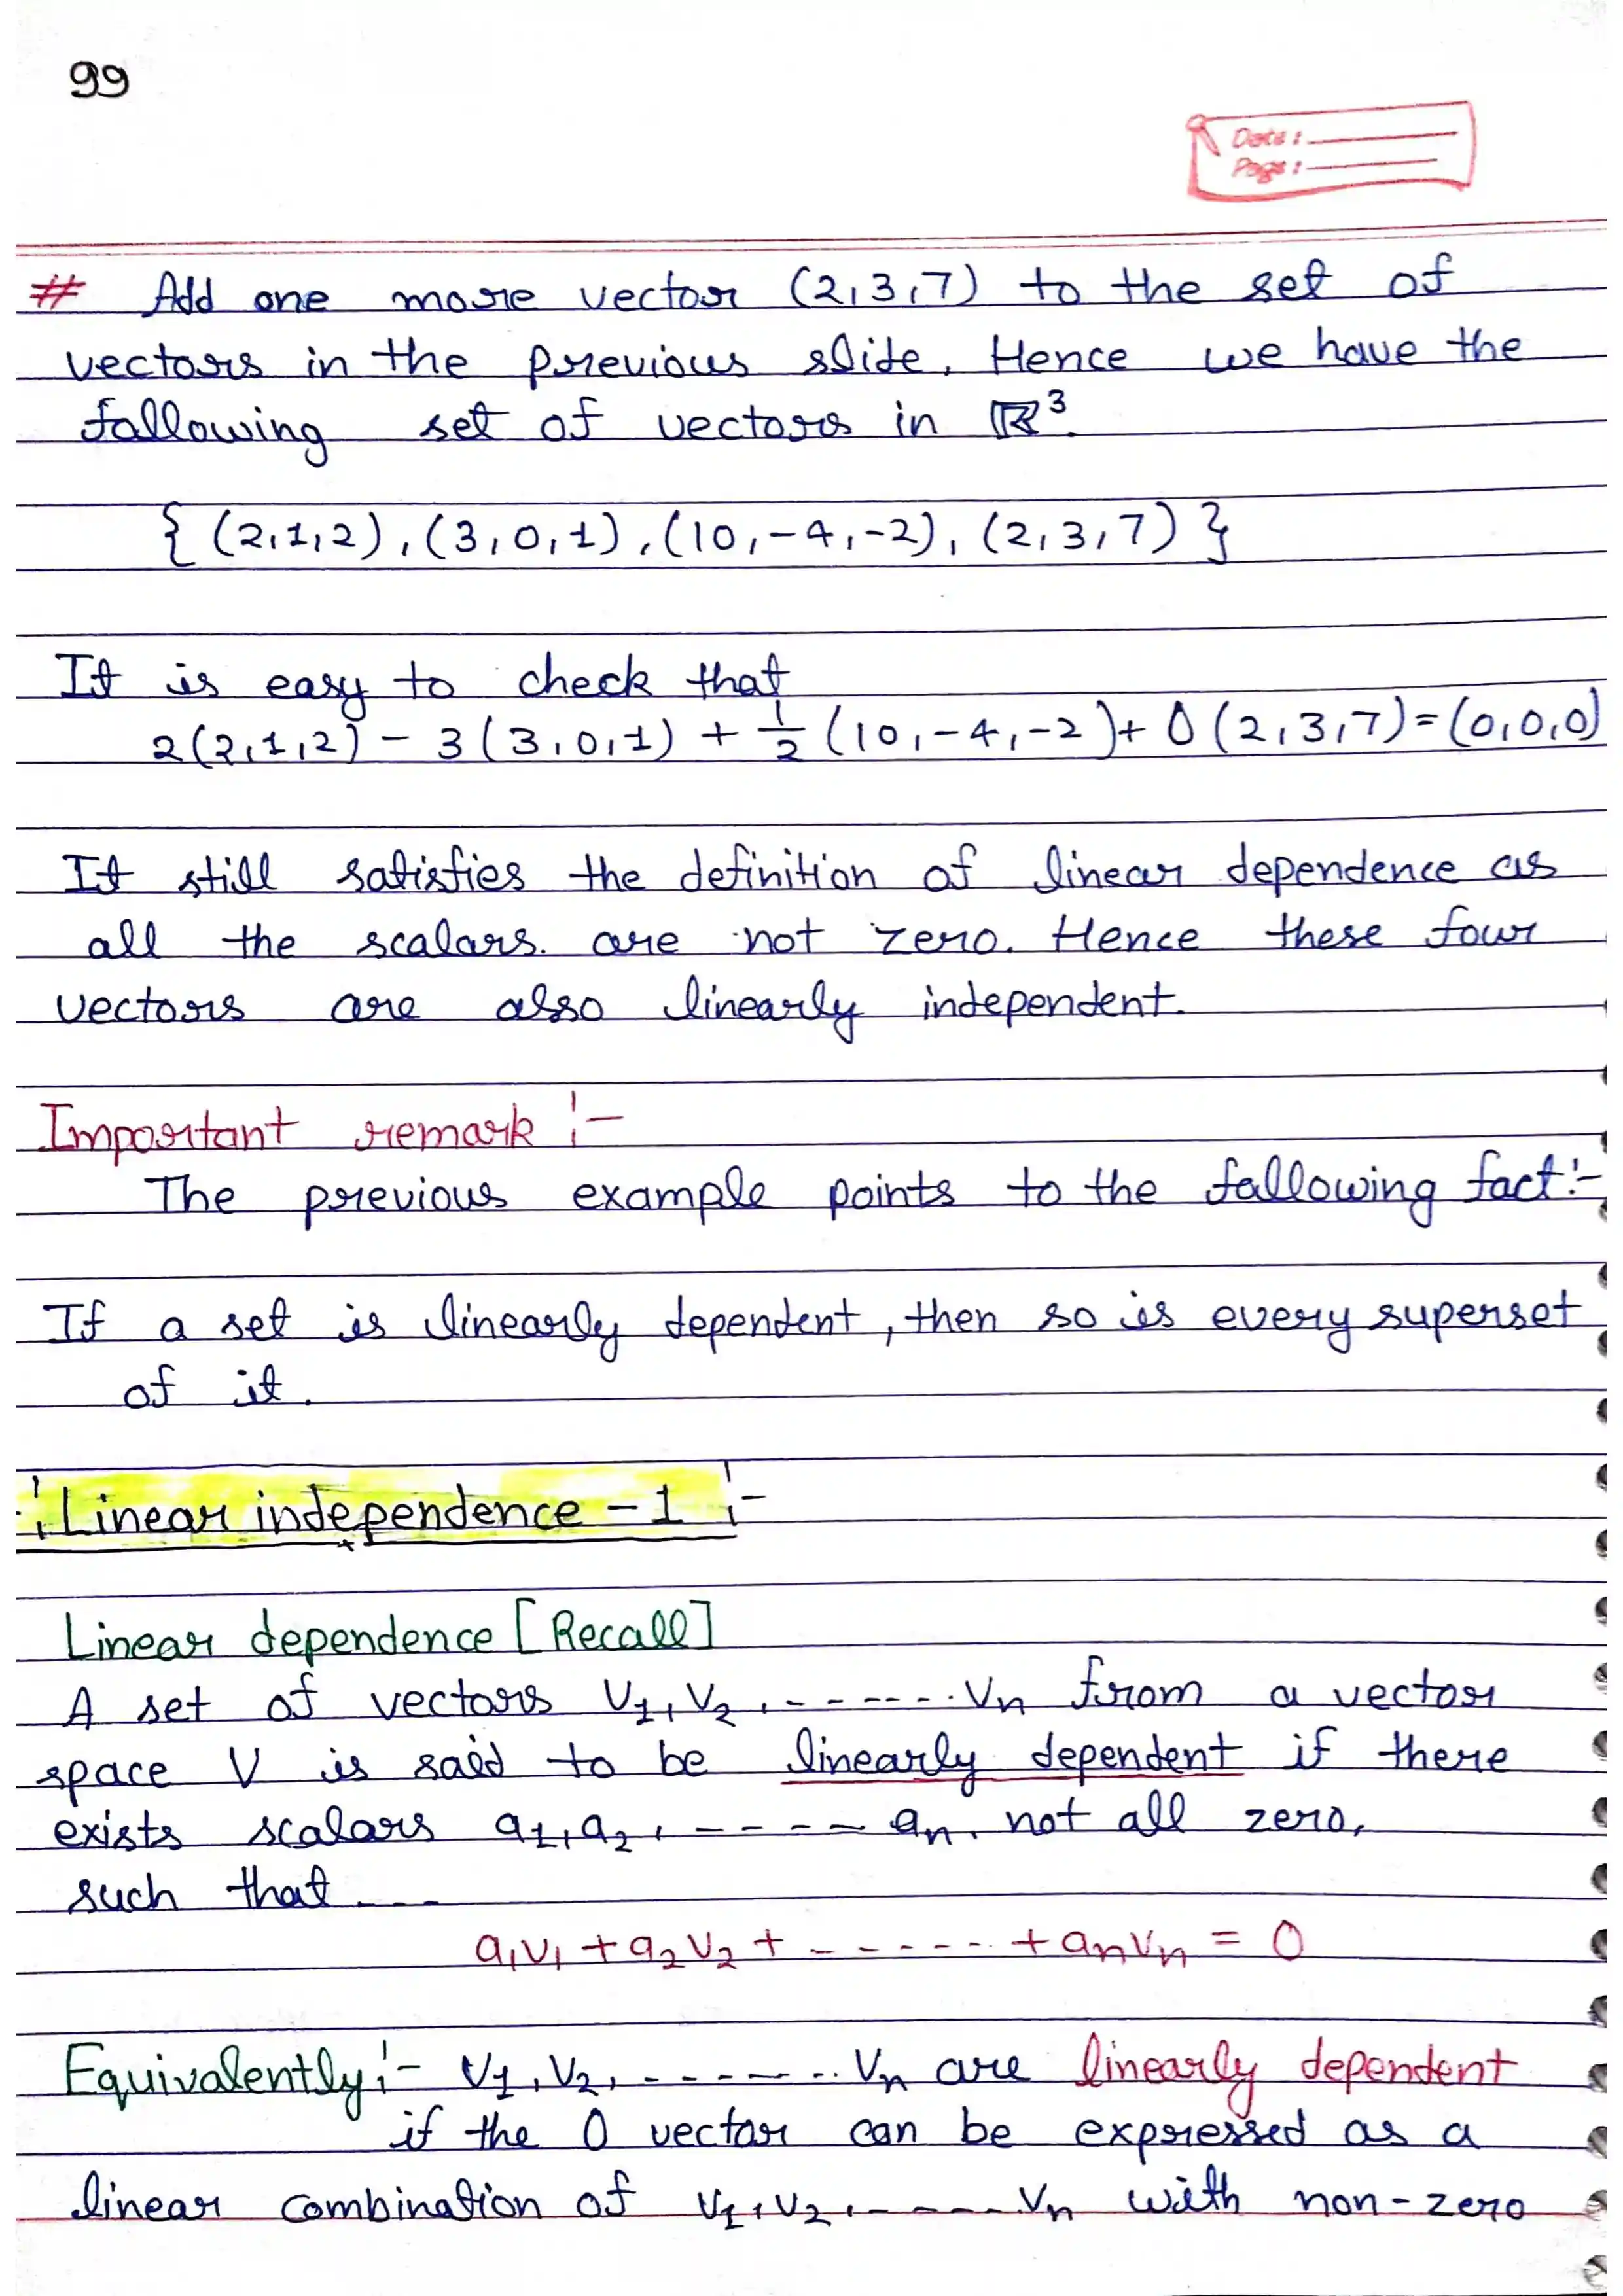 99
Date :
Page :
# Add one more vector (2,3,7) to the set of
vectors in the previous slide. Hence we have the
following set of vectors in ℝ³.
{ (2,1,2), (3,0,1), (10,-4,-2), (2,3,7) }
It is easy to check that
2(2,1,2) - 3(3,0,1) + 1/2 (10,-4,-2) + 0(2,3,7) = (0,0,0)
It still satisfies the definition of linear dependence as
all the scalars. are not zero. Hence these four
vectors are also linearly independent.
Important remark :-
The previous example points to the following fact:-
If a set is linearly dependent, then so is every superset
of it.
:Linear independence - 1 :-
Linear dependence [Recall]
A set of vectors V₁, V₂, ------- Vn from a vector
space V is said to be linearly dependent if there
exists scalars a₁, a₂, ----- an, not all zero,
such that ---
a₁v₁ + a₂v₂ + ------ + anvn = 0
Equivalently:- V₁, V₂, ------- Vn are linearly dependent
if the 0 vector can be expressed as a
linear combination of V₁, V₂, ----- Vn with non-zero